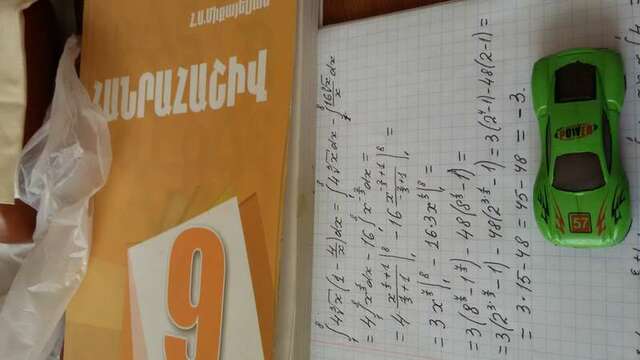 Հ.Ս.Միքայելյան
ՀԱՆՐԱՀԱՇԻՎ
9
∫₁⁸ 4∛x(1 - 4/x)dx = ∫₁⁸ 4∛x dx - ∫₁⁸ 16∛x/x dx
= 4∫₁⁸ x^(1/3) dx - 16∫₁⁸ x^(-2/3) dx =
= 4 x^(1/3+1)/(1/3+1) |₁⁸ - 16 x^(-2/3+1)/(-2/3+1) |₁⁸ =
= 3x^(4/3) |₁⁸ - 16·3x^(1/3) |₁⁸ =
= 3(8^(4/3) - 1^(4/3)) - 48(8^(1/3) - 1) =
= 3(2^(3·4/3) - 1) - 48(2^(3·1/3) - 1) = 3(2⁴-1) - 48(2-1) =
= 3·15 - 48 = 45 - 48 = -3.
POWER
57